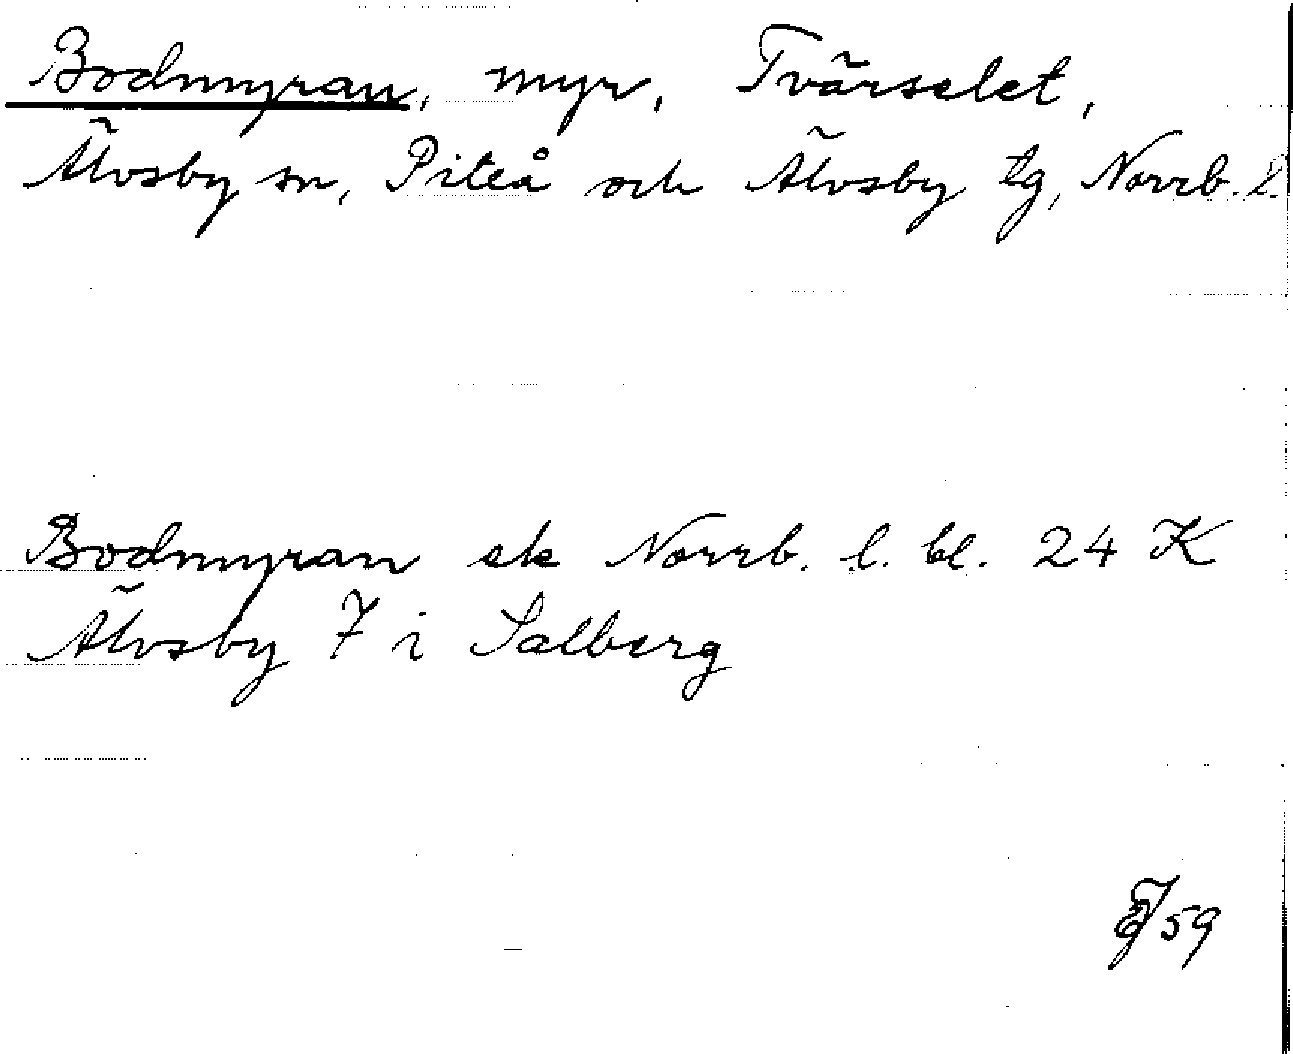 Bodmyran, myr, Tvärselet,
Älvsby sn, Piteå och Älvsby tg, Norrb. l.
Bodmyran ek Norrb. l. bl. 24 K
Älvsby 7 i Salberg
59